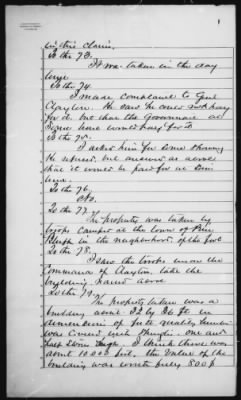 in this claim.
To the 73.
It was taken in the day
time
To the 74.
I made complaint to Genl
Clayton. He said he could not pay
for it but that the Government at
some time would pay for it
To the 75.
I asked him for some
He refused, but answered as above
that it would be paid for at some
time.
To the 76.
No.
To the 77.
The property was taken by
troops camped at the town of Pine
Bluff in the neighborhood of the
To the 78.
I saw the troops under the
Command of Clayton, take the
building named above
To the 79.
The property taken was a
building about 32 by 36 ft in
dimensions of
was covered with shingles, one and
half stories high. I think there was
about 10000 feet. The value of the
building was worth fully 800$